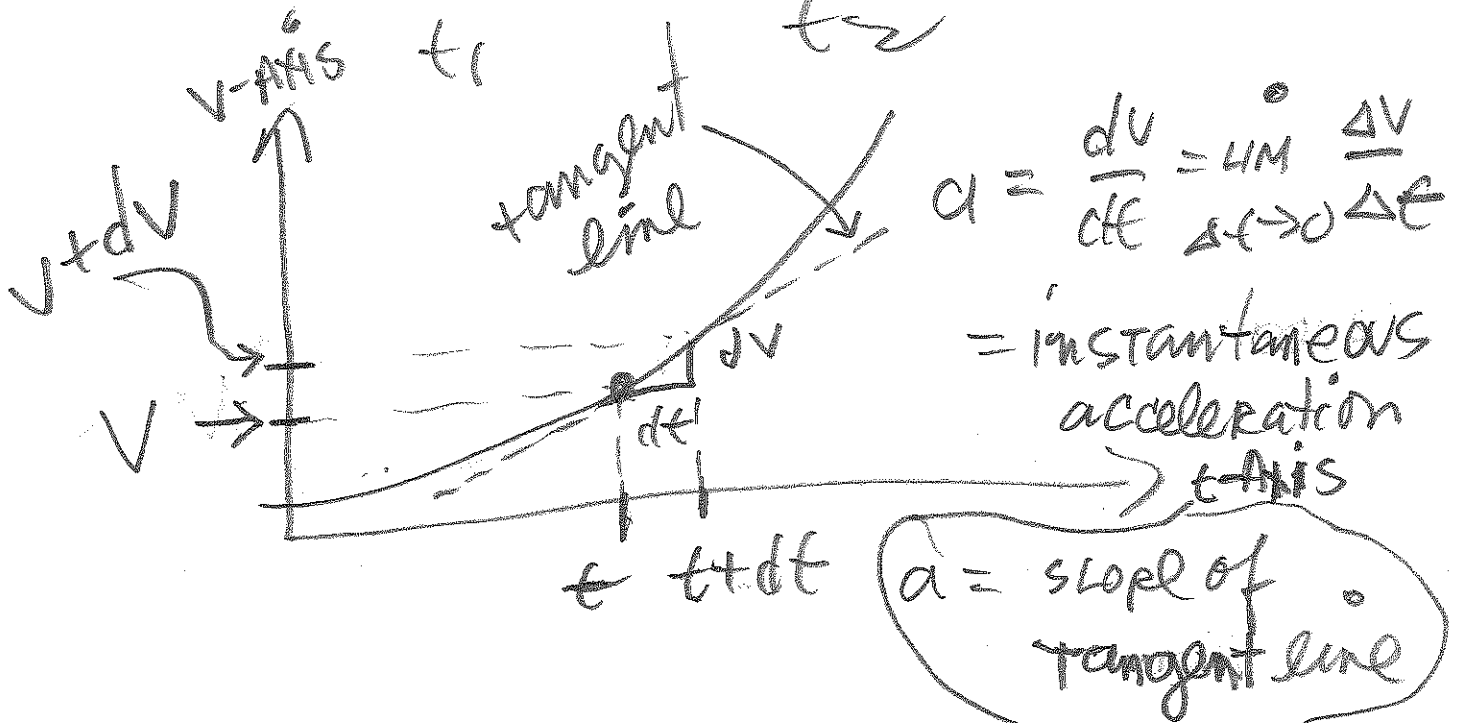 t₁ t₂
v-Axis
tangent
line
a = dv/dt = LIM Δt→0 Δv/Δt
v+dv
= instantaneous
acceleration
dv
V
dt
t-Axis
t t+dt
a = slope of
tangent line